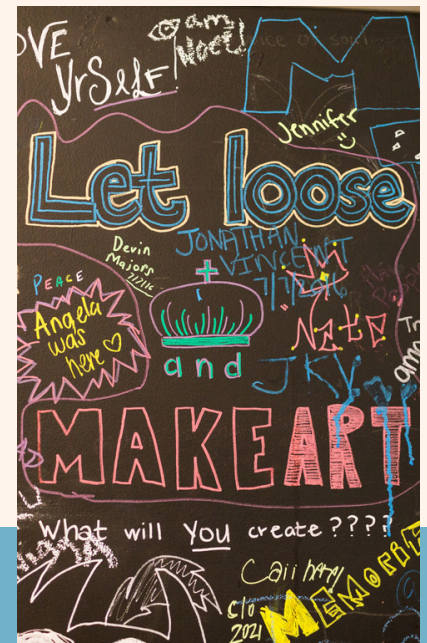 OVE
YrSelf!
am
Noel!
Jennifer
Let loose
Devin
Majors
JONATHAN
VINCENT
7/7/2016
PEACE
Angela
was
here
Nate
and
JKY
MAKE ART
What will YOU create ????
c/o
2021
MEMORIE